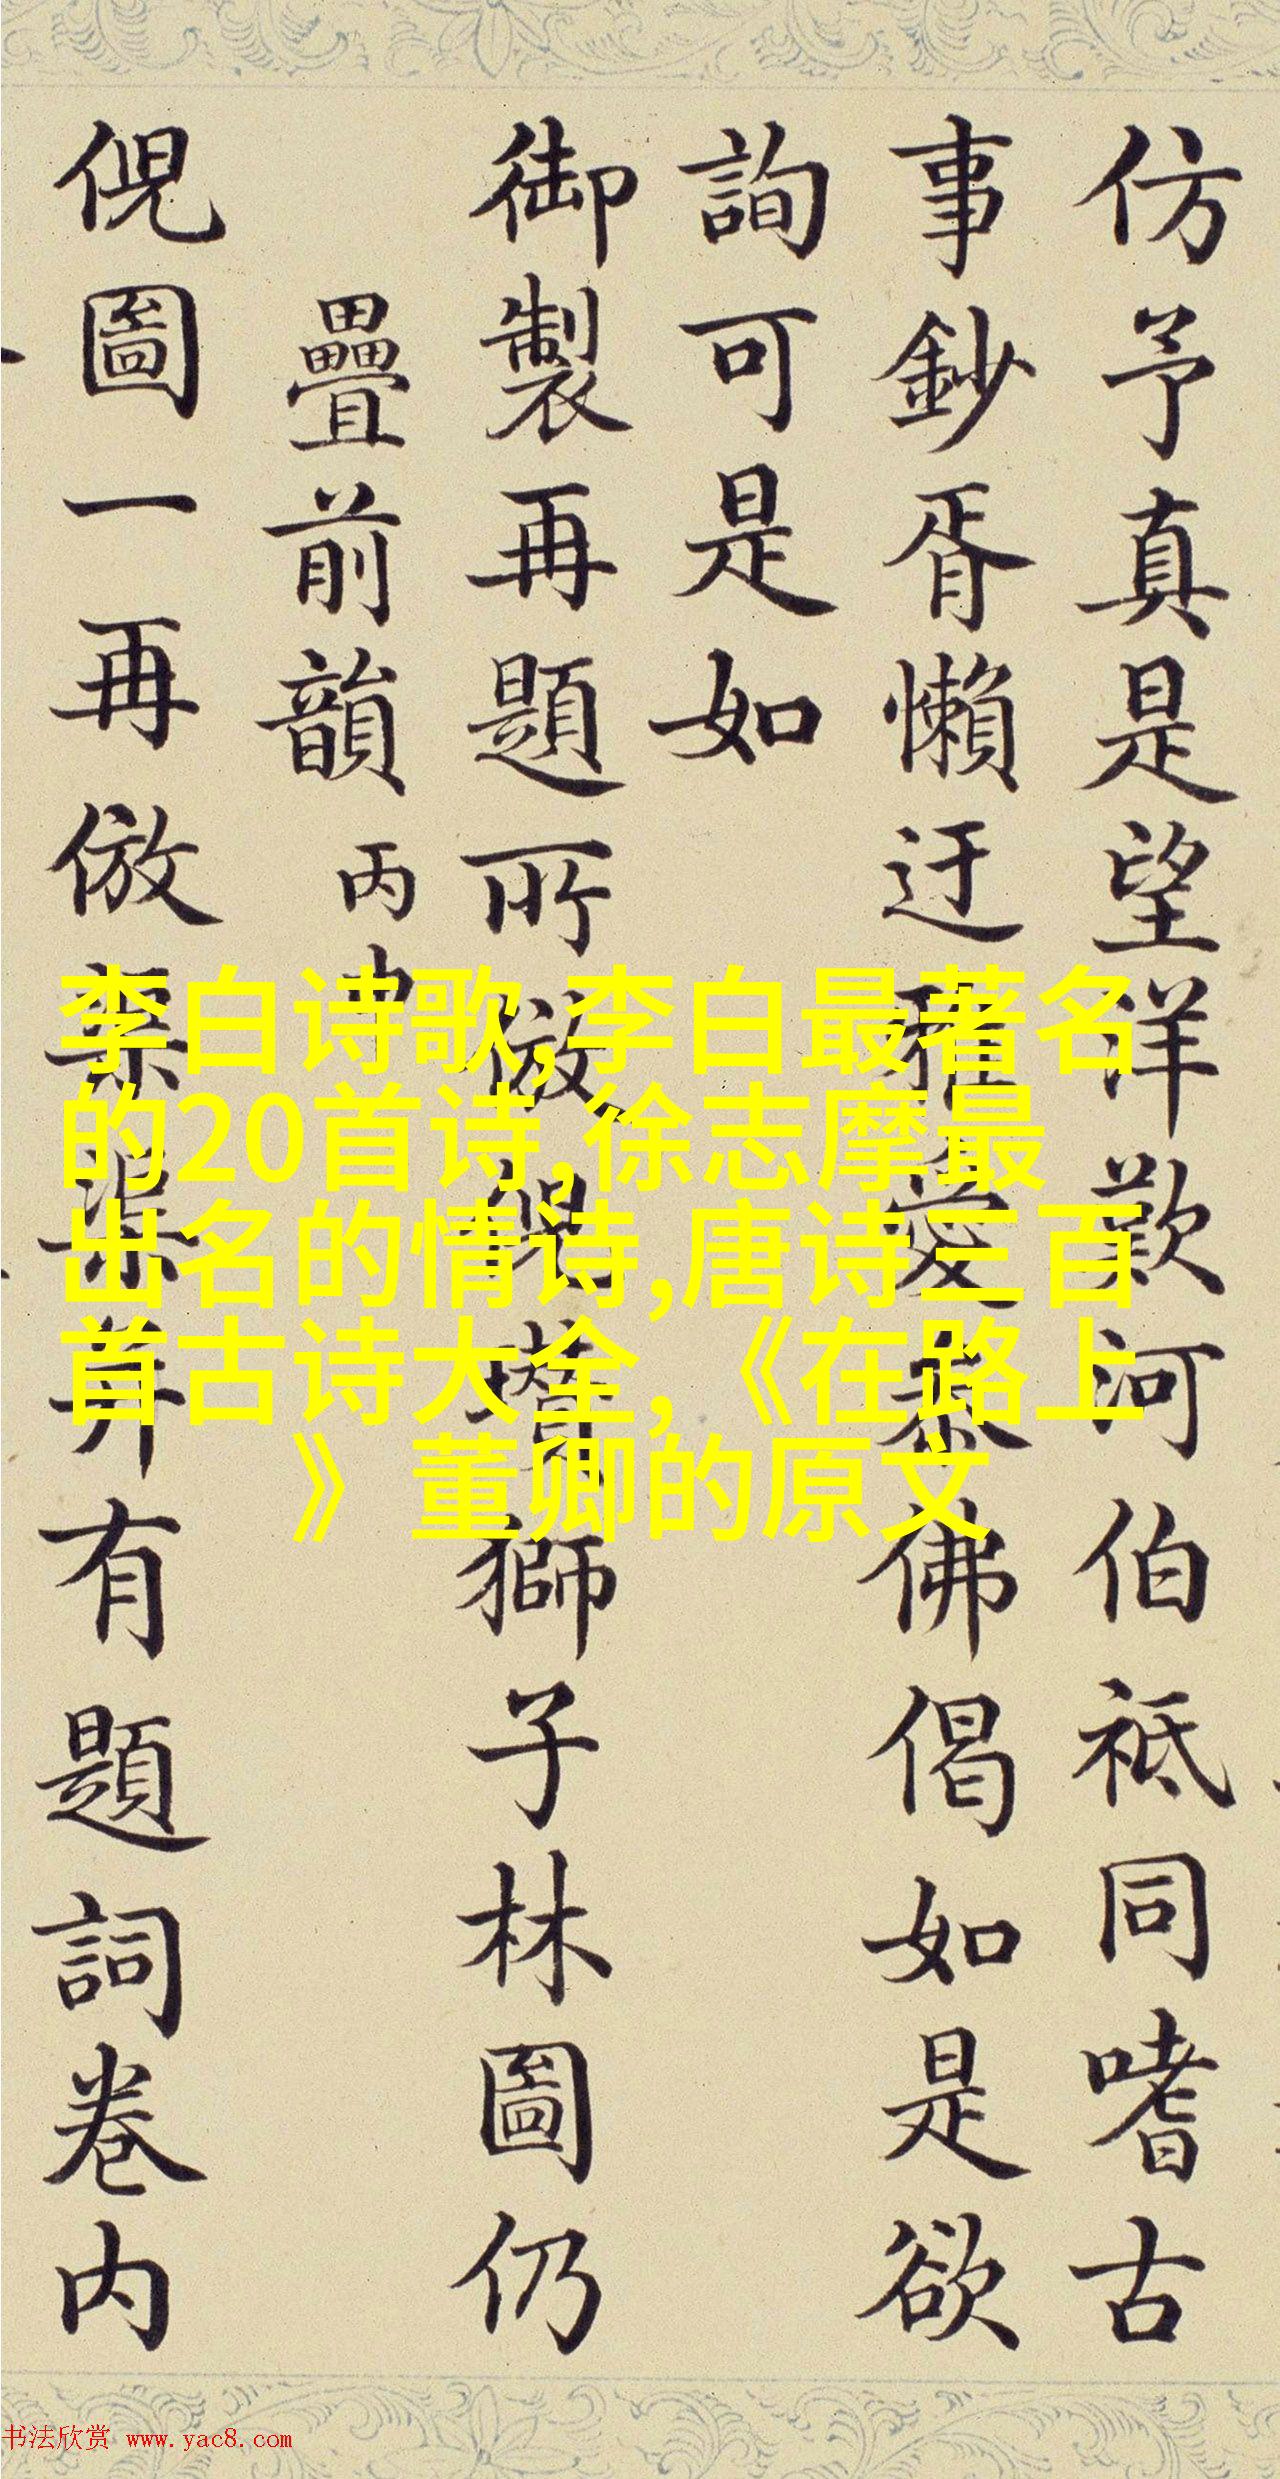 仿予真是望洋歎河伯祇同嗜古
事鈔胥懶迂雅愛佛偈如是欲
詢可是如
御製再題所倣倪瓚獅子林圖仍
疊前韻 丙申
倪圖一再倣渠弆有題詞卷内
李白诗歌,李白最著名
的20首诗,徐志摩最
出名的情诗,唐诗三百
首古诗大全,《在路上
》董卿的原文
书法欣赏 www.yac8.com